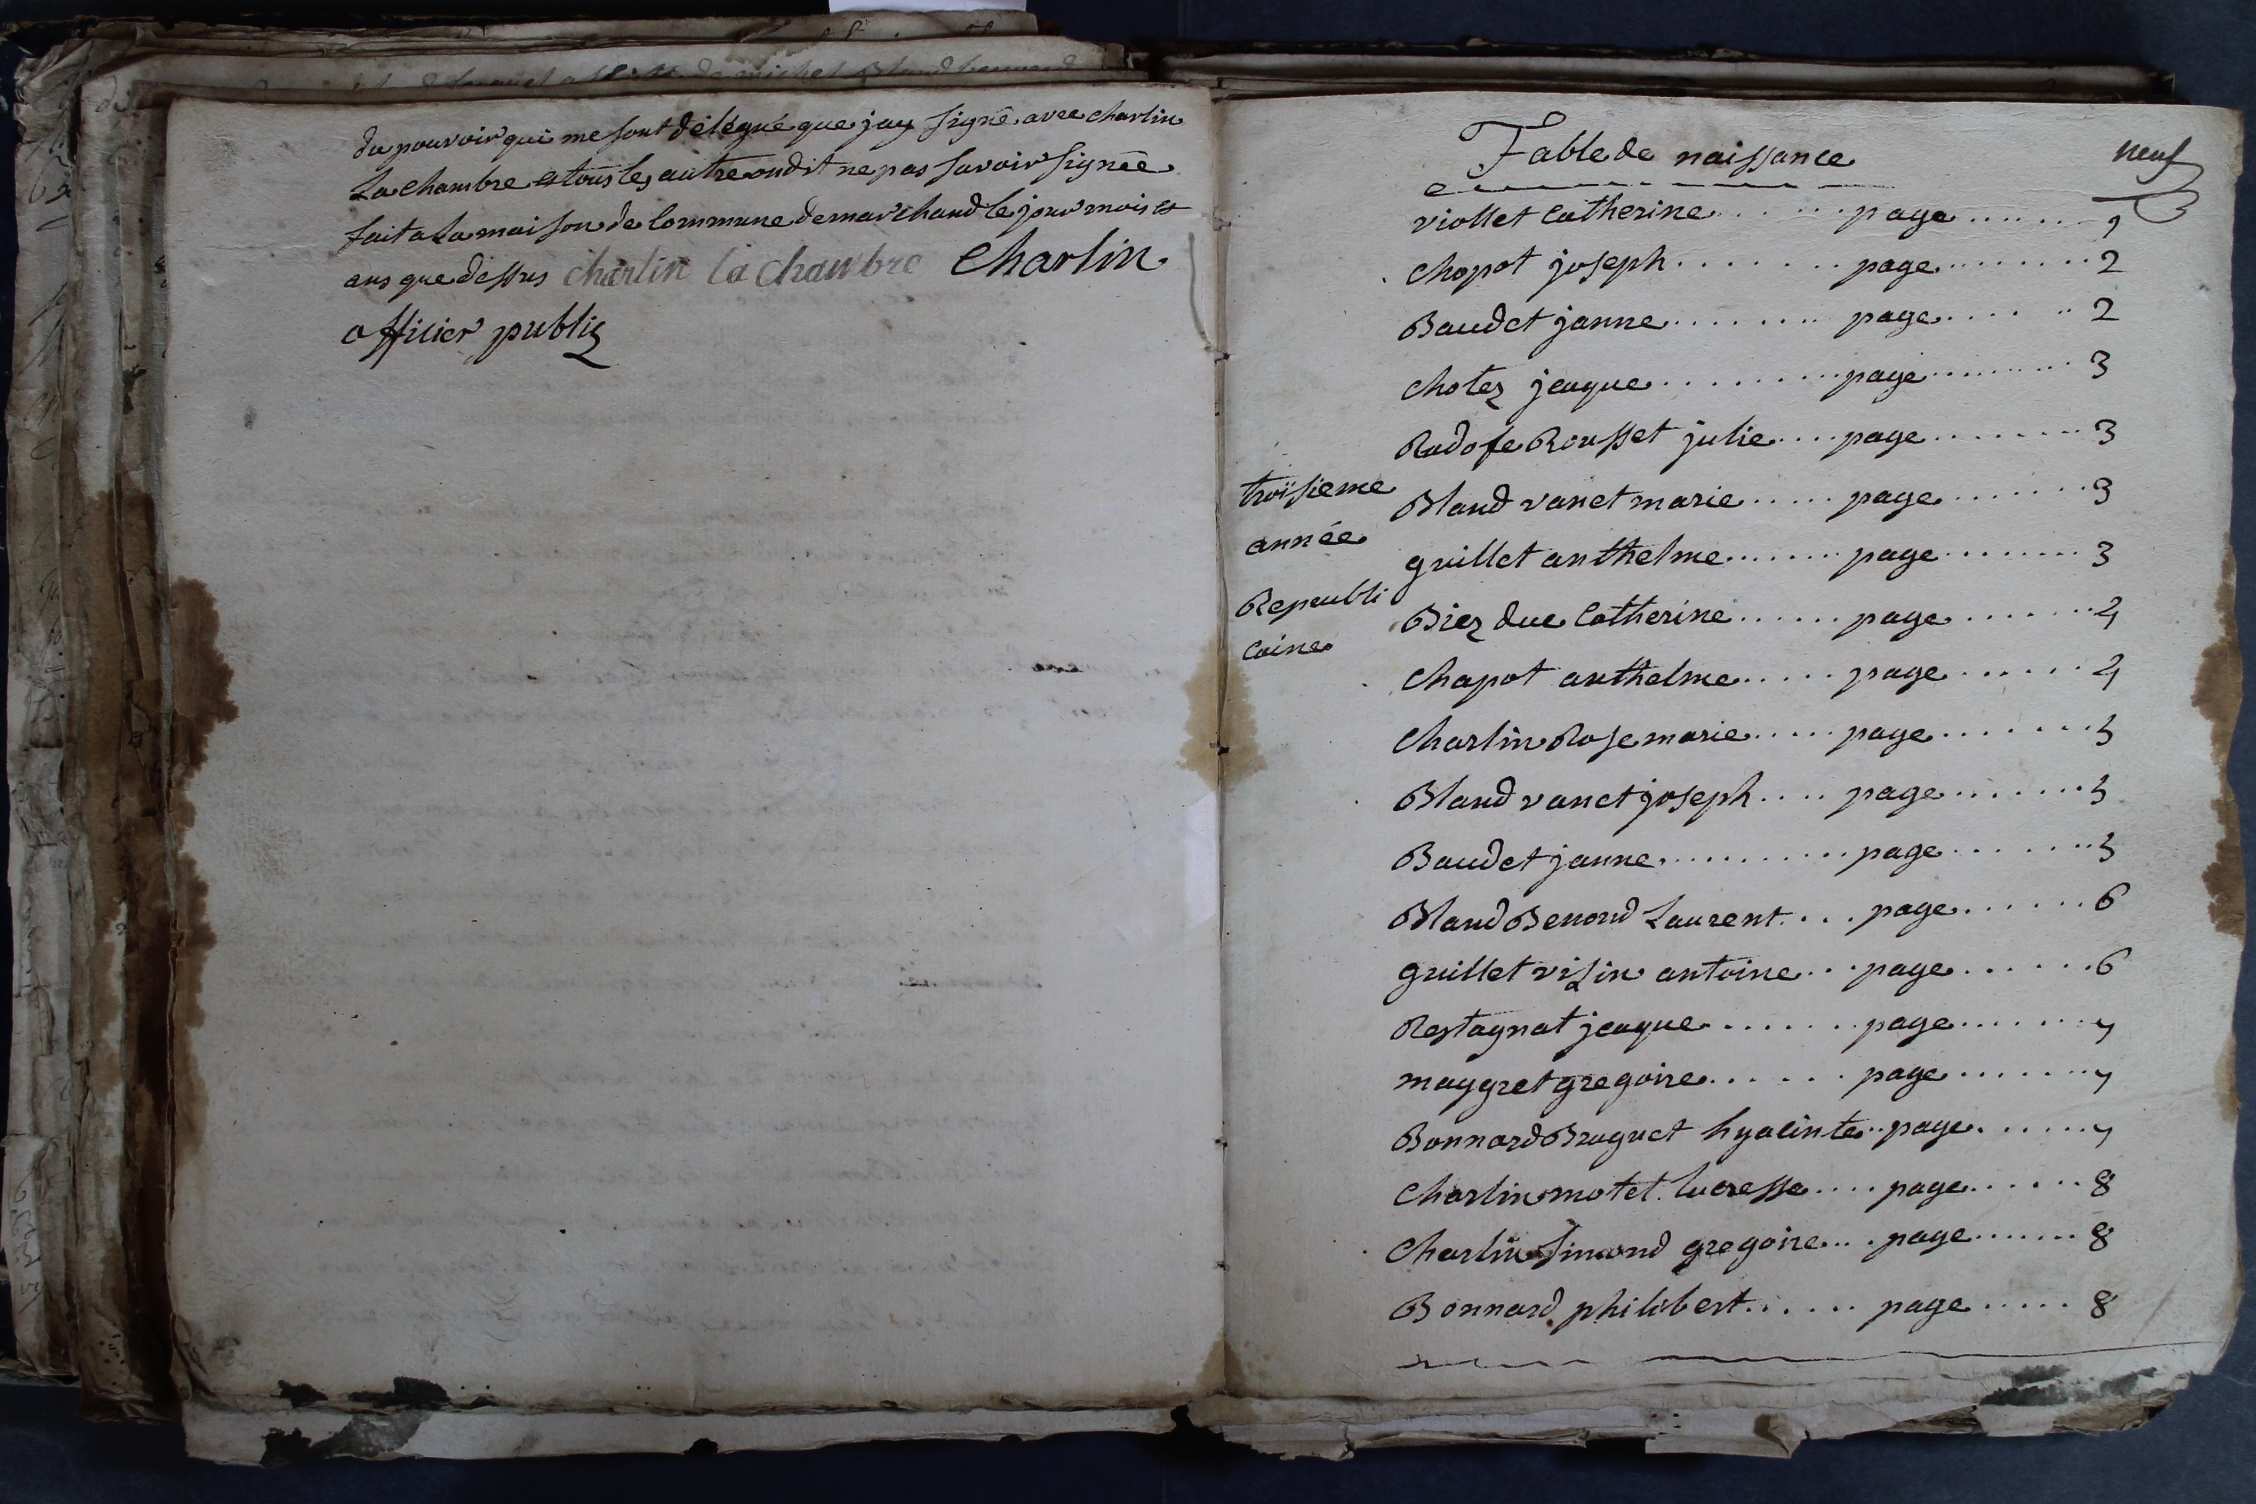 du pouvoir qui me sont délégué que jay signé avec charlin
La chambre et tous les autre on dit ne pas savoir signée
fait a La maison de Commune demarchand le jour mois et
ans que dessus charlin la chambre Charlin
officier publiq
Table de naissance
neuf
viollet Catherine page 1
Chapot joseph page 2
Baudet janne page 2
Chotez jeaque page 3
Rudofe Rousset julie page 3
troisieme
année
Repeubli
Caine
Bland vanet marie page 3
guillet anthelme page 3
Biez duc Catherine page 4
Chapot anthelme page 4
Charlin Rose marie page 5
Bland vanet joseph page 5
Baudet janne page 5
Bland Benond Laurent page 6
guillet visin antoine page 6
Restagnat jeaque page 7
maygret gregoire page 7
Bonnard Braguet hyacinte page 7
Charlin motet lucresse page 8
Charlin Simond gregoire page 8
Bonnard philibert page 8